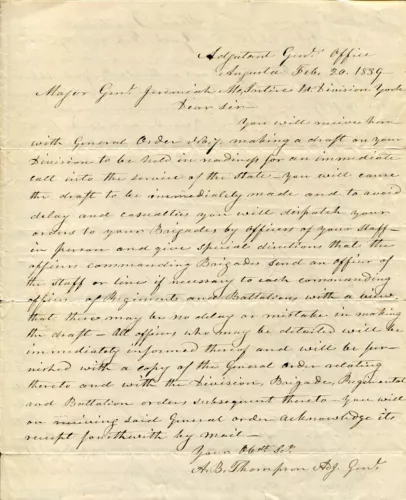 Adjutant Genl. Office
Augusta Feb. 20. 1839.
Major Genl. Jeremiah McIntire 1st. Division York
Dear Sir
You will receive here
with General Order No. 7. making a draft on your
Division to be held in readiness for an immediate
call into the service of the State – You will cause
the draft to be immediately made and to avoid
delay and casualties you will dispatch your
orders to your Brigades by officers of your staff –
in person and give special directions that the
officers commanding Brigades send an officer of
the staff or line if necessary to each commanding
officer of Regiments and Battalions with a view
that there may be no delay or mistake in making
the draft – All officers who may be detailed will be
immediately informed thereof and will be fur-
nished with a copy of the General Order relating
thereto and with the Division, Brigade, Regimental
and Battalion orders subsequent thereto – You will
on receiving said General order acknowledge its
receipt forthwith by mail –
Your Obt. St.
A. B. Thompson Adj. Genl.